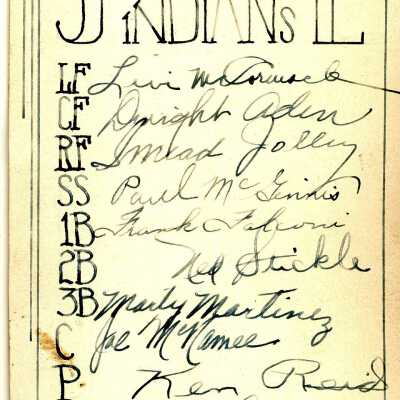 INDIANS
LF Levi McCormack
CF Dwight Aden
RF Smead Jolley
SS Paul McGinnis
1B Frank Falconi
2B Ned Stickle
3B Marty Martinez
C Joe McNamee
P Ken Reid